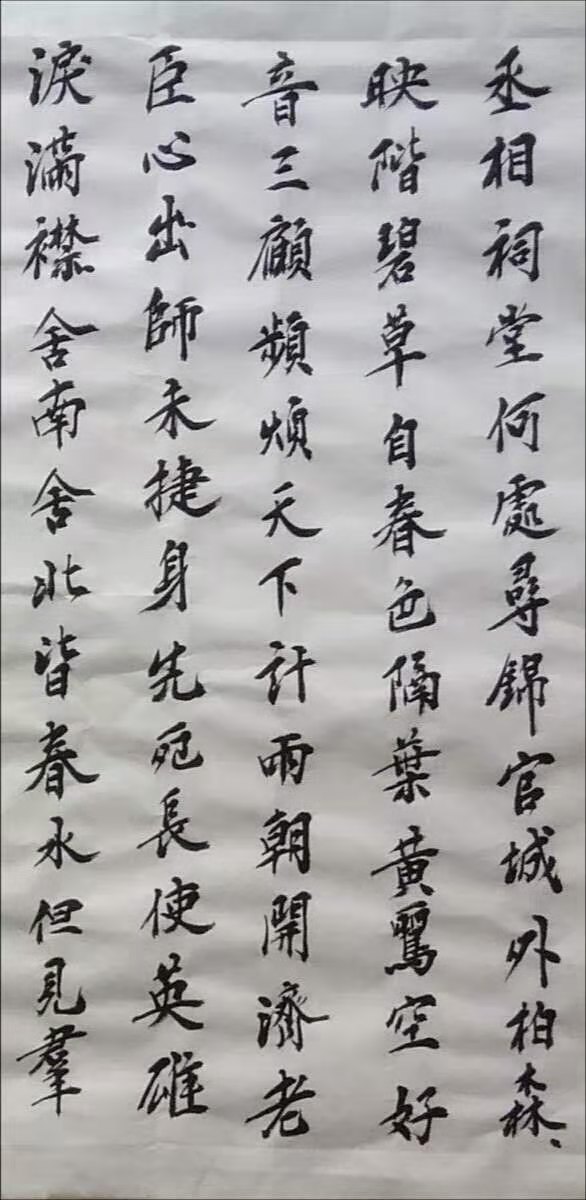 丞相祠堂何處尋錦官城外柏森〻
映階碧草自春色隔葉黃鸝空好
音三顧頻煩天下計兩朝開濟老
臣心出師未捷身先死長使英雄
淚滿襟舍南舍北皆春水但見羣